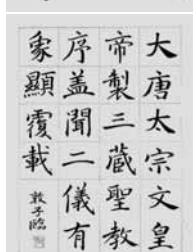 大唐太宗文皇
帝製三藏聖教
序盖聞二儀有
象顯覆載
敦子臨